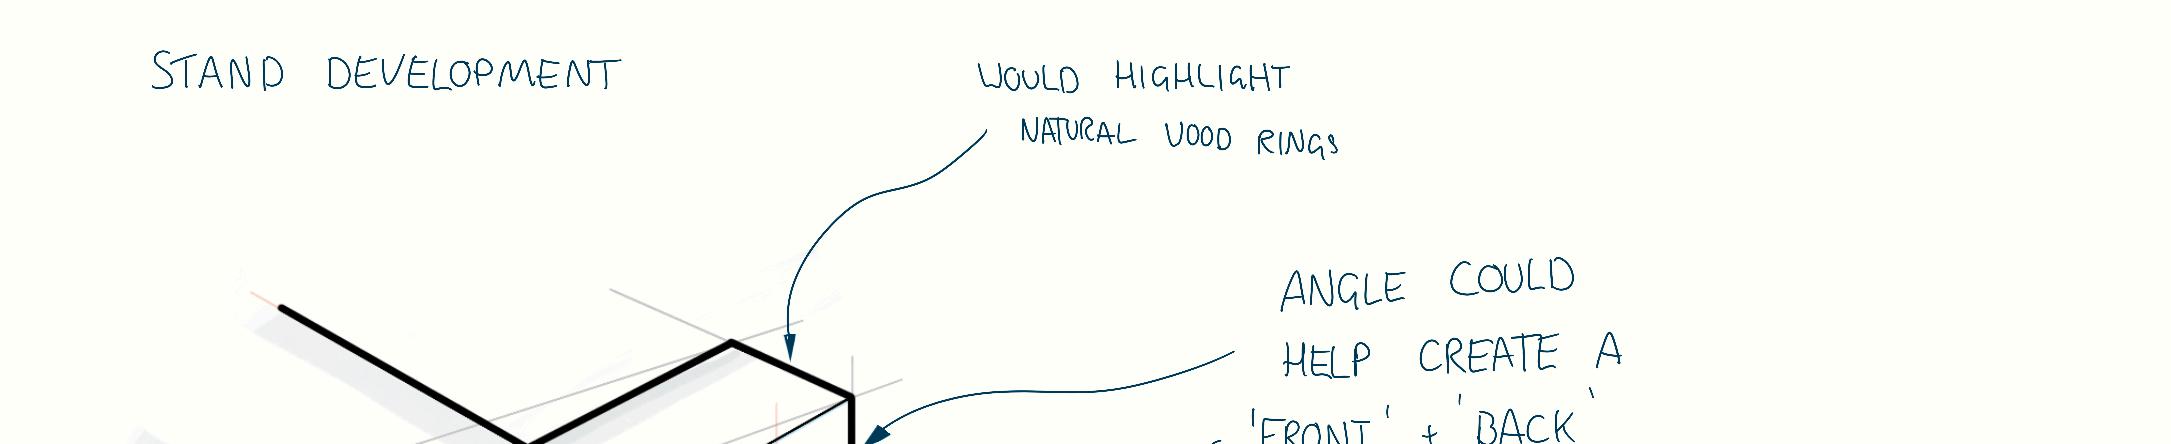 STAND DEVELOPMENT
WOULD HIGHLIGHT
NATURAL WOOD RINGS
ANGLE COULD
HELP CREATE A
'FRONT' + 'BACK'